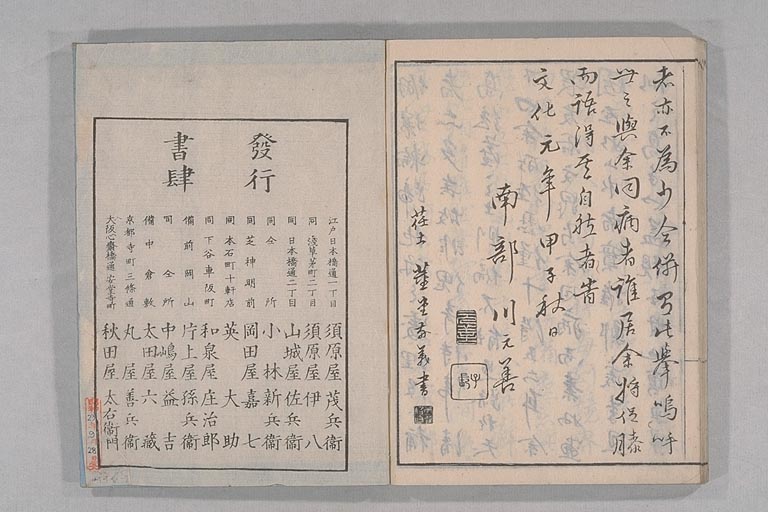 老亦不為少今併
世之與余同病者誰居余將促膝
而語得其自然者皆
文化元年甲子秋日
南部川元善
書
發行
書肆
江戸日本橋通一丁目 須原屋茂兵衞
同 淺草茅町二丁目 須原屋伊八
同 日本橋通二丁目 山城屋佐兵衞
同 仝所 小林新兵衞
同 芝神明前 岡田屋嘉七
同 本石町十軒店 英大助
同 下谷車阪町 和泉屋庄治郎
備前岡山 片上屋孫兵衞
同 仝所 中嶋屋益吉
備中倉敷 太田屋六藏
京都寺町三條通 丸屋善兵衞
大阪心齋橋通安堂寺町 秋田屋太右衞門